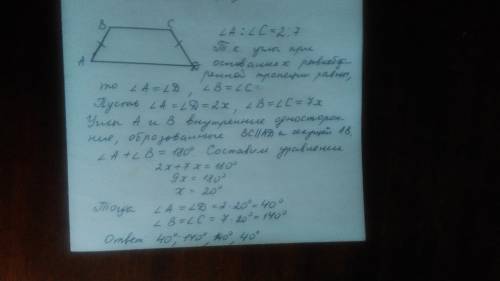 B C
A D
∠A : ∠C = 2,7
Т.к углы при
основаниях равнобед-
ренной трапеции равны,
то ∠A = ∠D , ∠B = ∠C.
Пусть ∠A = ∠D = 2x, ∠B = ∠C = 7x
Углы A и B внутренние односторон-
ние, образованные BC||AD и секущей AB.
∠A + ∠B = 180° Составим уравнение
2x + 7x = 180°
9x = 180°
x = 20°
Тогда ∠A = ∠D = 2·20° = 40°
∠B = ∠C = 7·20° = 140°
Ответ 40°, 140°, 140°, 40°